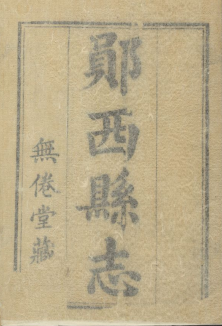 鄖西縣志
無倦堂藏